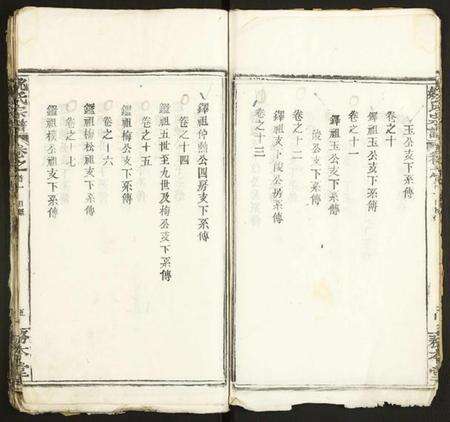 玉公支下系傳
卷之十
鐸祖玉公支下系傳
卷之十一
公支下系傳
卷之十二
鐸祖支下陵公房系傳
卷之十三
鐸祖仲公四房支下系傳
卷之十四
鑑祖五世至九世及梅公支下系傳
卷之十五
鑑祖梅公支下系傳
卷之十六
鑑祖梅松祖支下系傳
卷之十七
鑑祖公祖支下系傳
氏宗譜
務本堂